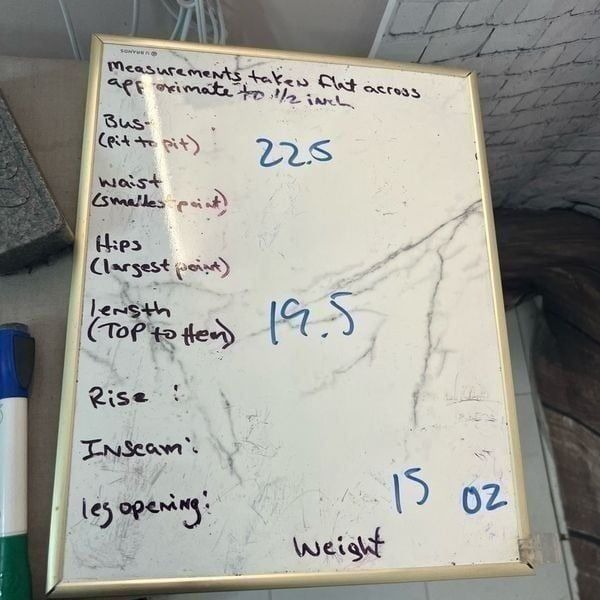 Measurements taken flat across
approximate to 1/2 inch
Bust
(pit to pit) 22.5
waist
(smallest point)
Hips
(largest point)
length
(TOP to Hem) 19.5
Rise :
INseam:
leg opening: 15 oz
Weight